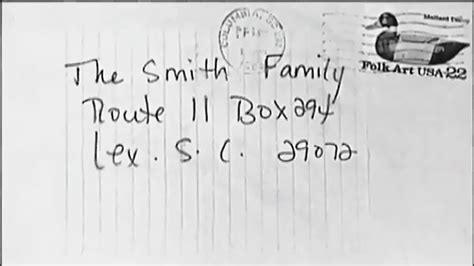 COLUMBIA, SC
Mallard De
Folk Art USA 22
The Smith Family
Route 11 Box 294
Lex. S. C. 29072